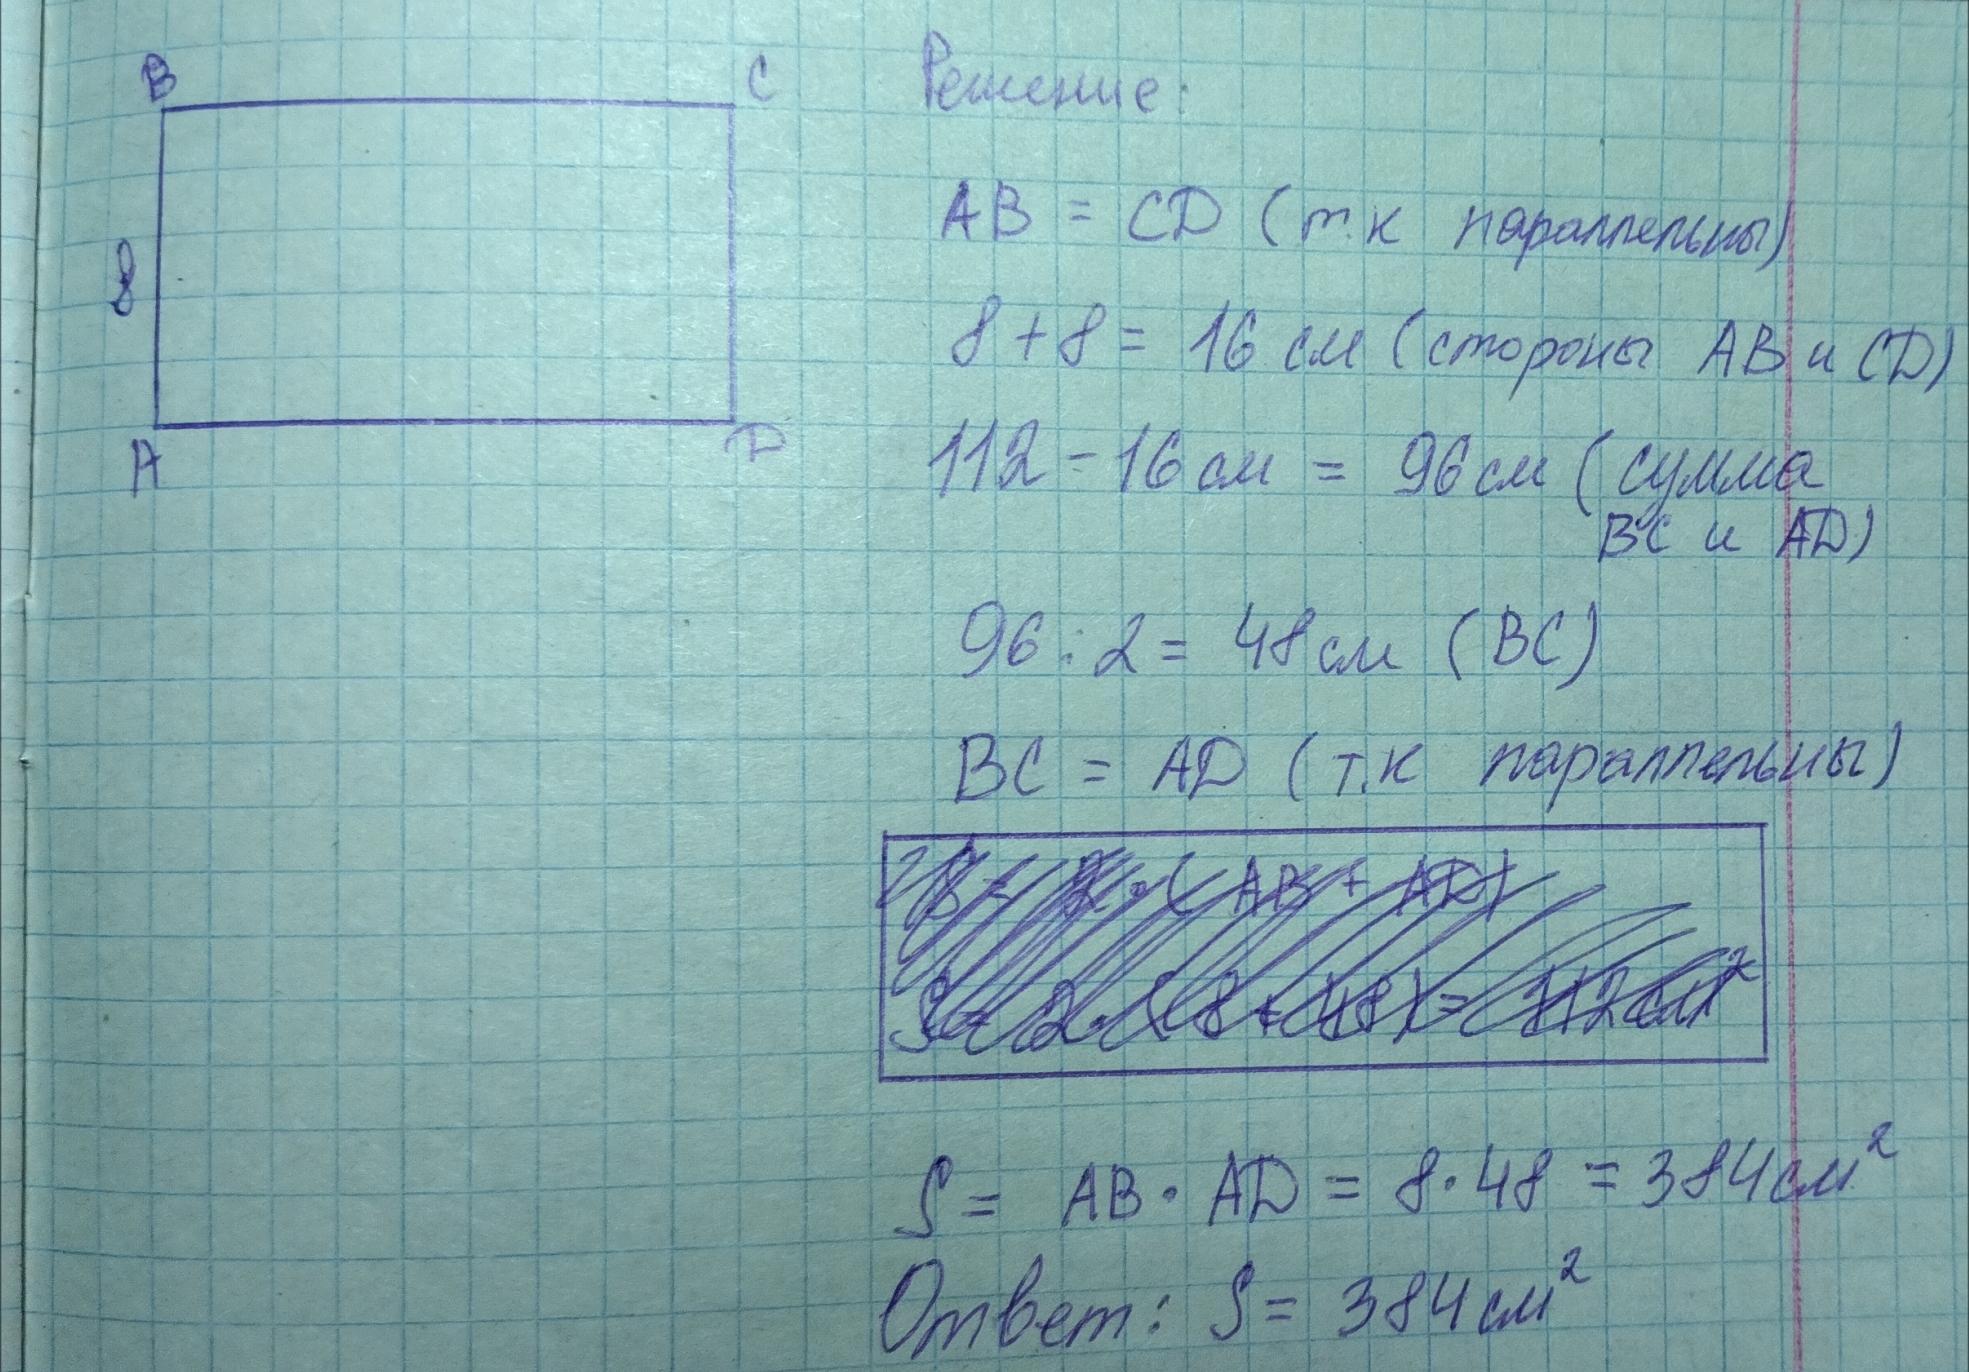 B
C
8
A
D
Решение:
AB = CD (т.к параллельны)
8 + 8 = 16 см (стороны AB и CD)
112 - 16 см = 96 см (сумма
BC и AD)
96 : 2 = 48 см (BC)
BC = AD (т.к параллельны)
= 2 · (AB + AD)
S = 2 · (8 + 48) = 112 см²
S = AB · AD = 8 · 48 = 384 см²
Ответ: S = 384 см²